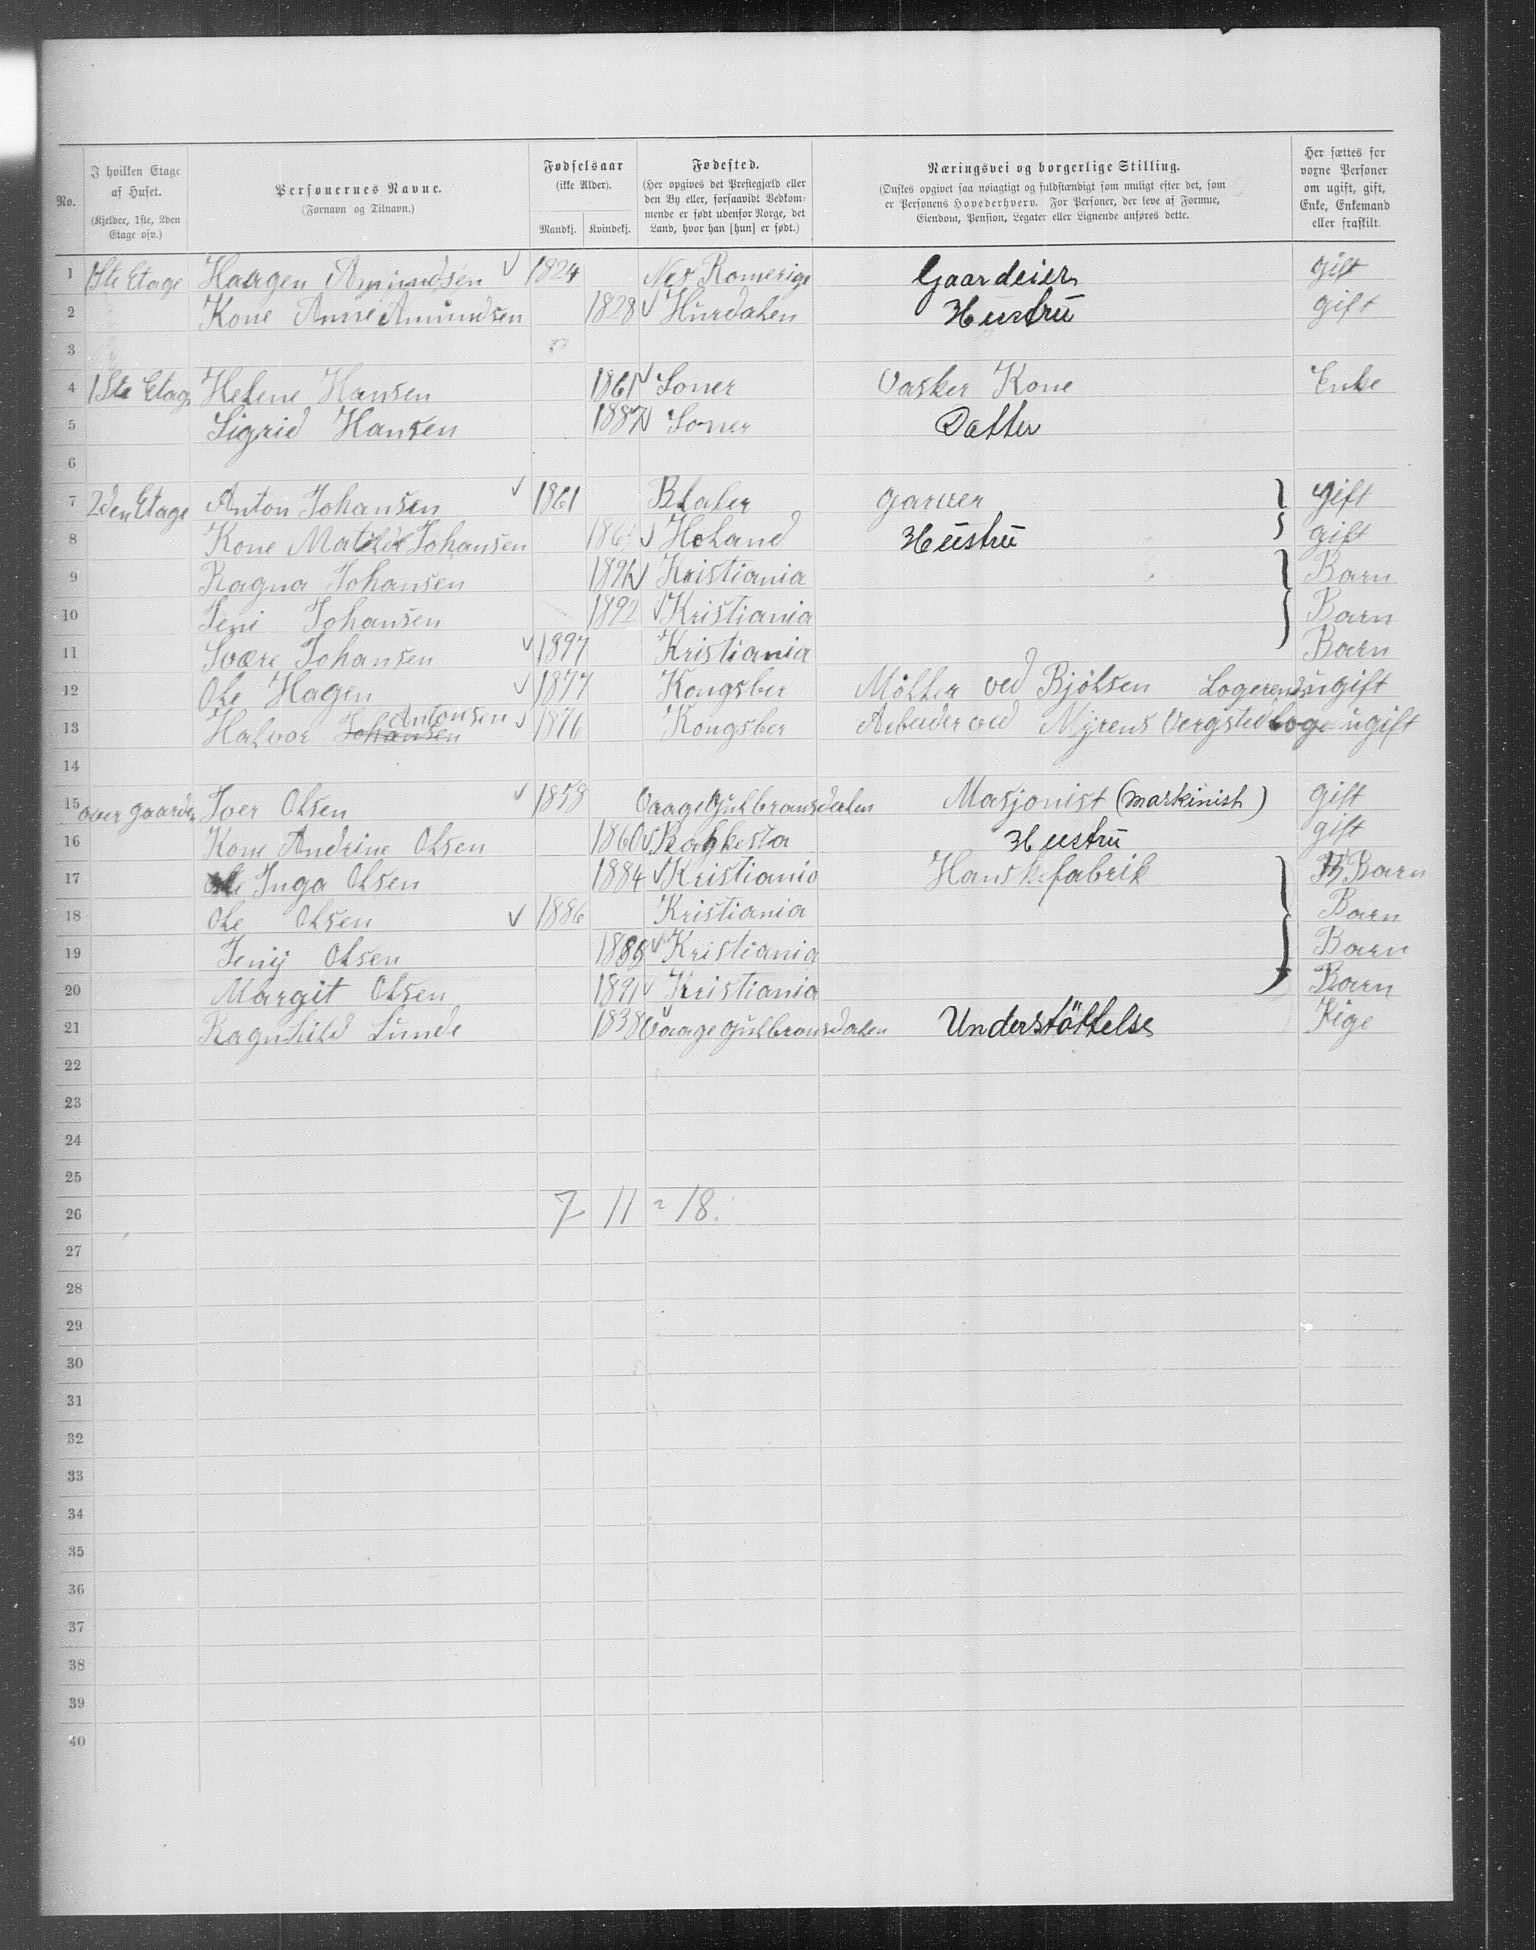 No.
I hvilken Etage af Huset. (Kjelder, 1ste, 2den Etage osv.)
Personernes Navne. (Fornavn og Tilnavn.)
Fødselsaar (ikke Alder). Mandkj. Kvindekj.
Fødested. (Her opgives det Prestegjæld eller den By eller, forsaavidt Vedkommende er født udenfor Norge, det Land, hvor han [hun] er født.)
Næringsvei og borgerlige Stilling. (Ønskes opgivet saa nøiagtigt og fuldstændigt som muligt efter det, som er Personens Hovederhverv. For Personer, der leve af Formue, Eiendom, Pension, Legater eller Lignende anføres dette.)
Her sættes for voxne Personer om ugift, gift, Enke, Enkemand eller fraskilt.
1 1Ste Etage Haagen Amundsen 1824 Nes Romerige Gaardeier gift
2 Kone Anne Amundsen 1828 Hurdalen Hustru gift
3
4 1Ste Etage Helene Hansen 1861 Soner Vasker Kone Enke
5 Sigrid Hansen 1887 Soner Datter
6
7 2den Etage Anton Johansen 1861 Blaker garver gift
8 Kone Johansen Holand Hustru gift
9 Ragna Johansen 1896 Kristiania Barn
10 Jeni Johansen 1892 Kristiania Barn
11 Svære Johansen 1897 Kristiania Barn
12 Ole Hagen 1877 Kongsber Möller ved Bjölsen Logerend ugift
13 Halvor Johansen Antonsen 1876 Kongsber Arbeider ved Myrens Vergsted Loge ugift
14
15 over gaarden Iver Olsen 1858 Vaage Gulbransdalen Masjonist (markinist) gift
16 Kone Andrine Olsen 1860 Bakkesta Hustru gift
17 Inga Olsen 1884 Kristiania Hanskefabrik Barn
18 Ole Olsen 1886 Kristiania Barn
19 Jenij Olsen 1889 Kristiania Barn
20 Margit Olsen 1891 Kristiania Barn
21 Ragnhild Lunde 1838 Vaage gulbransdalen Understöttelse Pige
22
23
24
25
26 7 11 = 18.
27
28
29
30
31
32
33
34
35
36
37
38
39
40